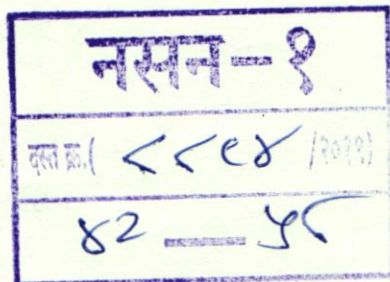 नसन-१
दस्त क्र.( ८८९४ /२०११)
४२ — ५८